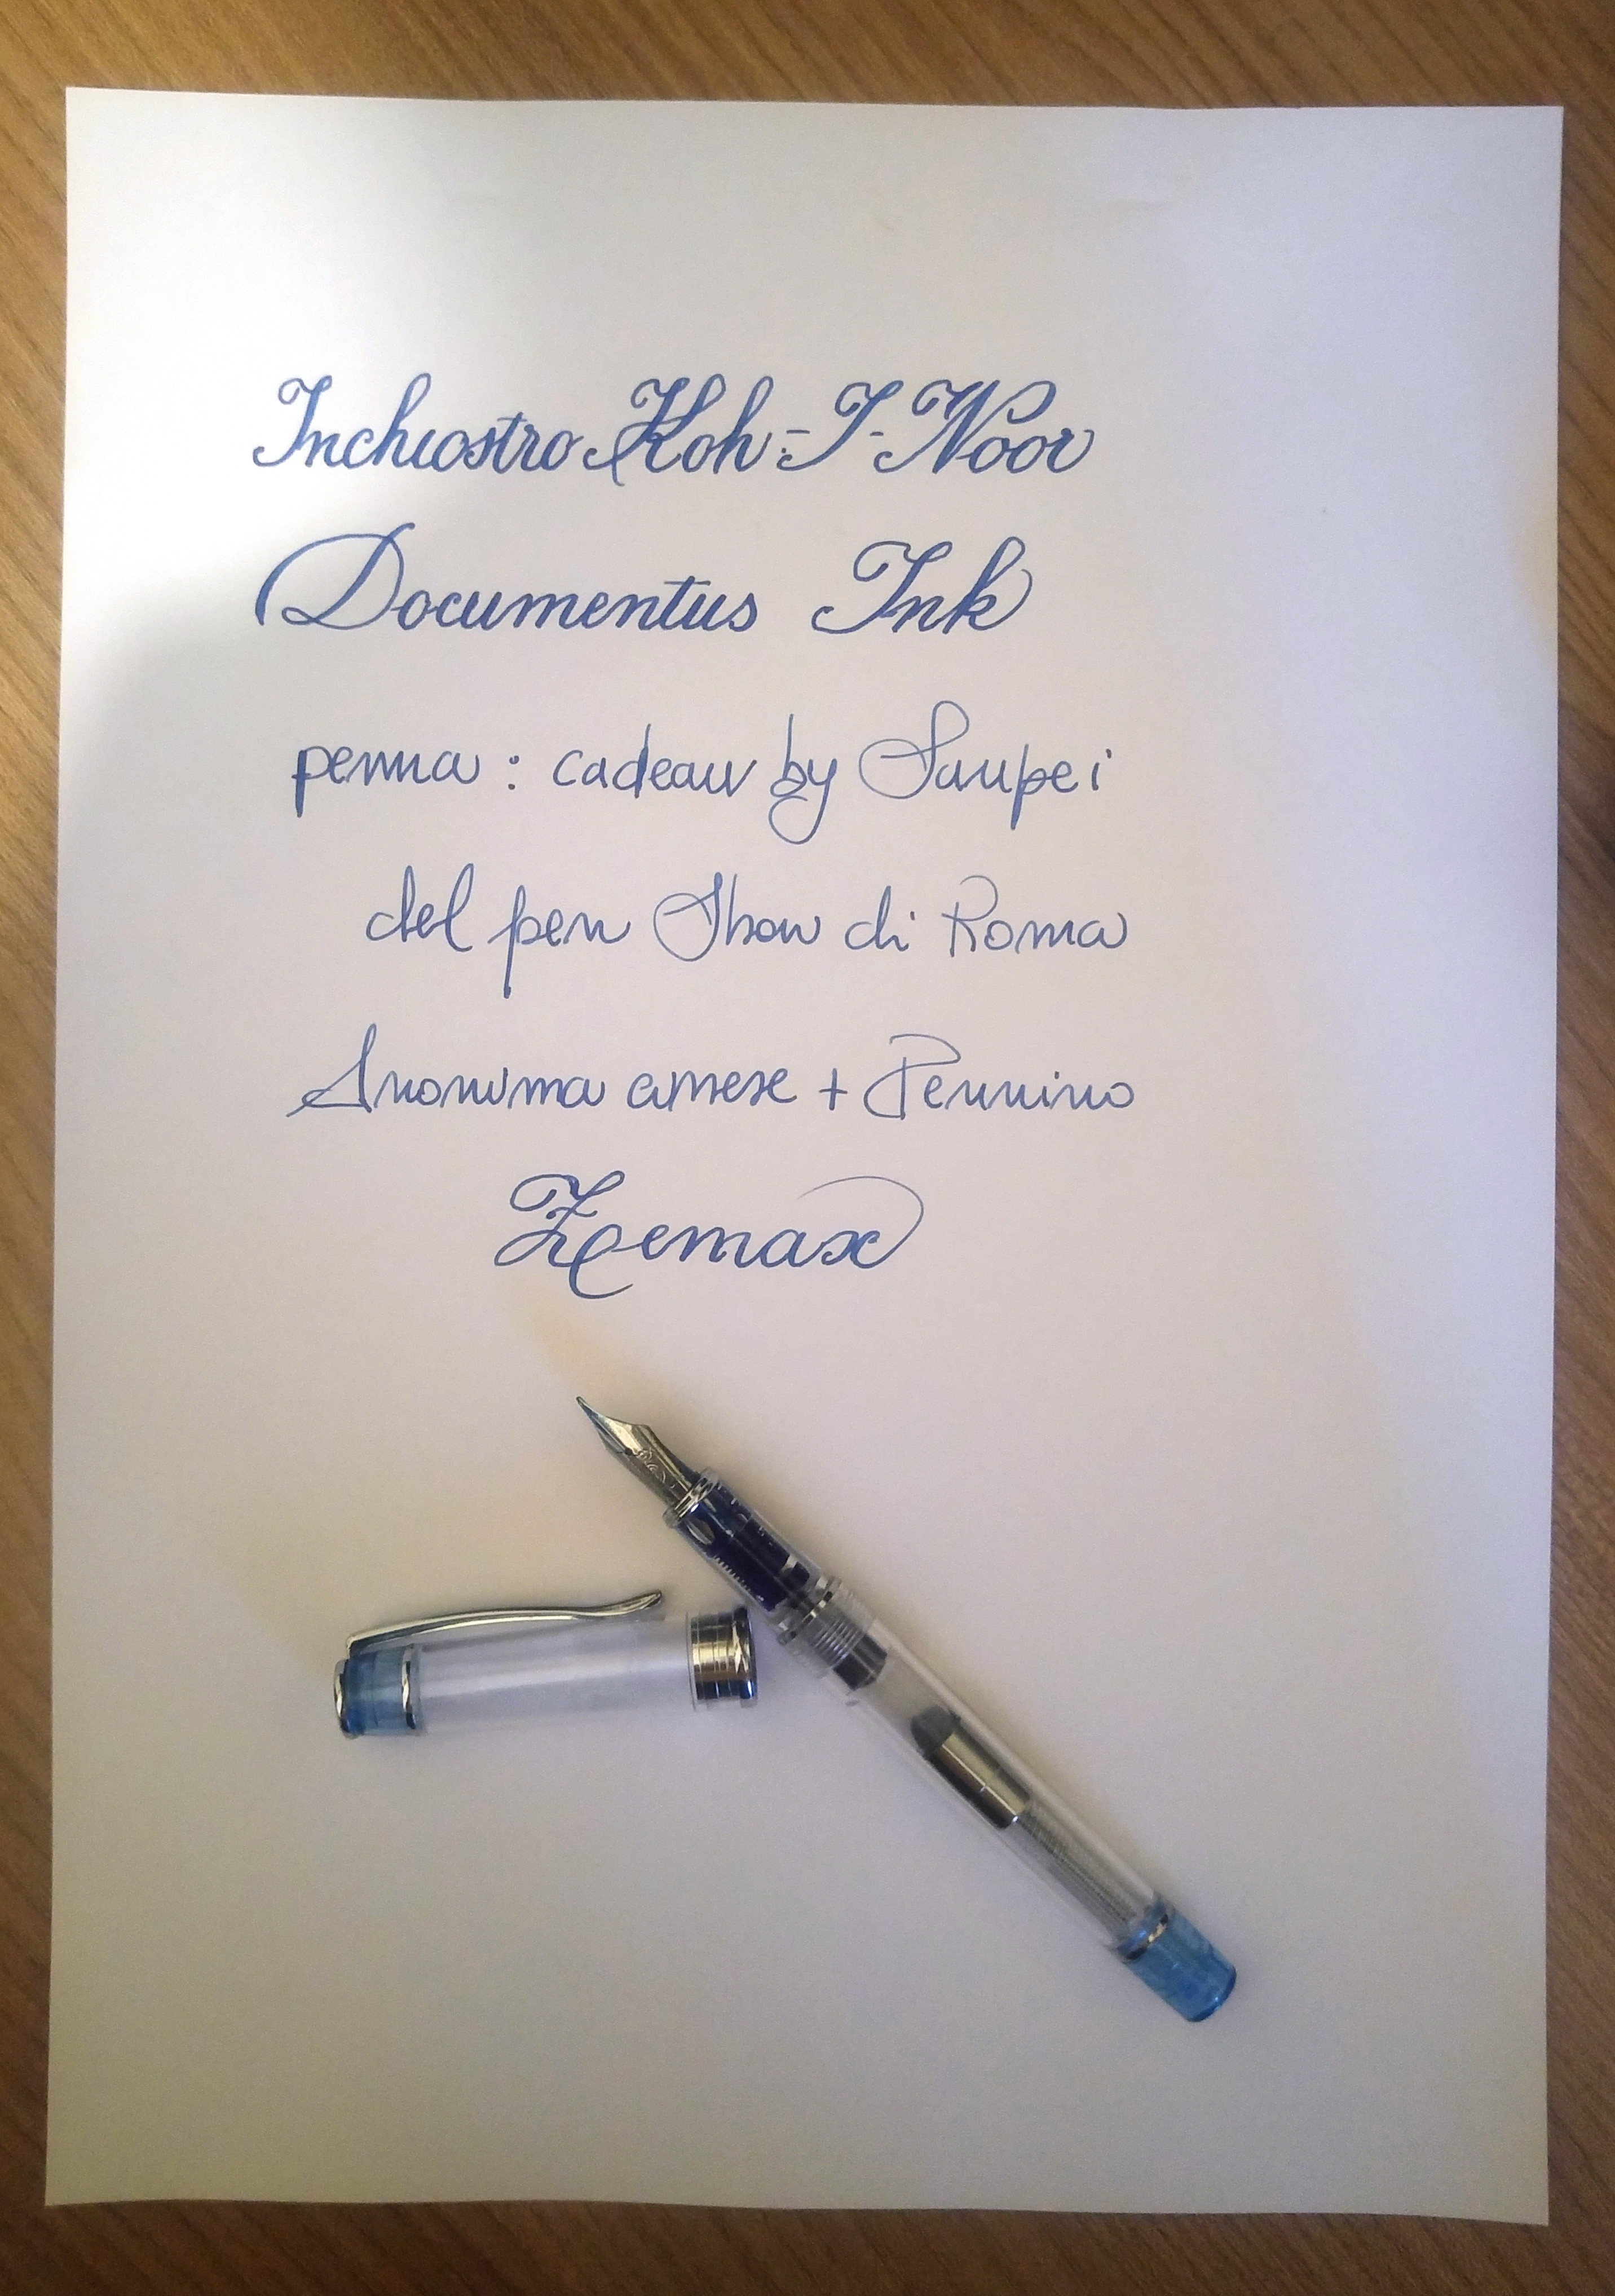 Inchiostro Koh-I-Noor
Documentus Ink
penna: cadeau by Saupei
del pen Show di Roma
Anonima cinese + Pennino
Zemax